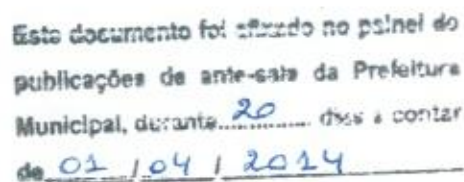 Este documento foi afixado no painel de
publicações da ante-sala da Prefeitura
Municipal, durante 20 dias a contar
de 01 / 04 / 2014